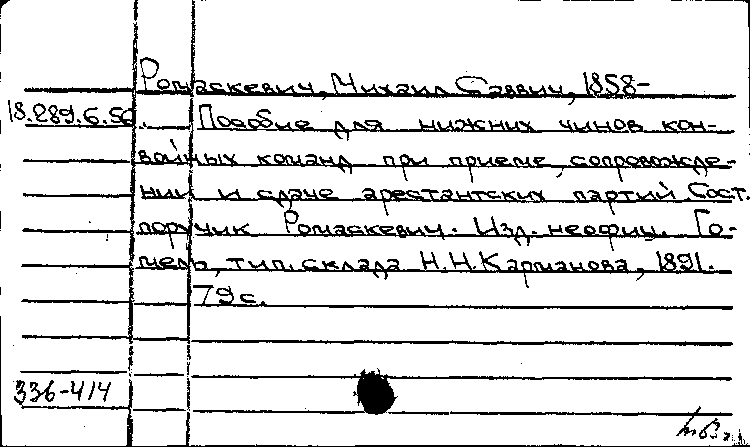 Ромаскевич, Михаил Саввич, 1858-
18.289.6.50. Пособие для нижних чинов кон-
войных команд при приеме, сопровожде-
нии и сдаче арестантских партий Сост.
поручик Ромаскевич. Изд. неофиц. Го-
мель, тип. склада Н.Н. Карманова, 1891.
79 с.
336-414